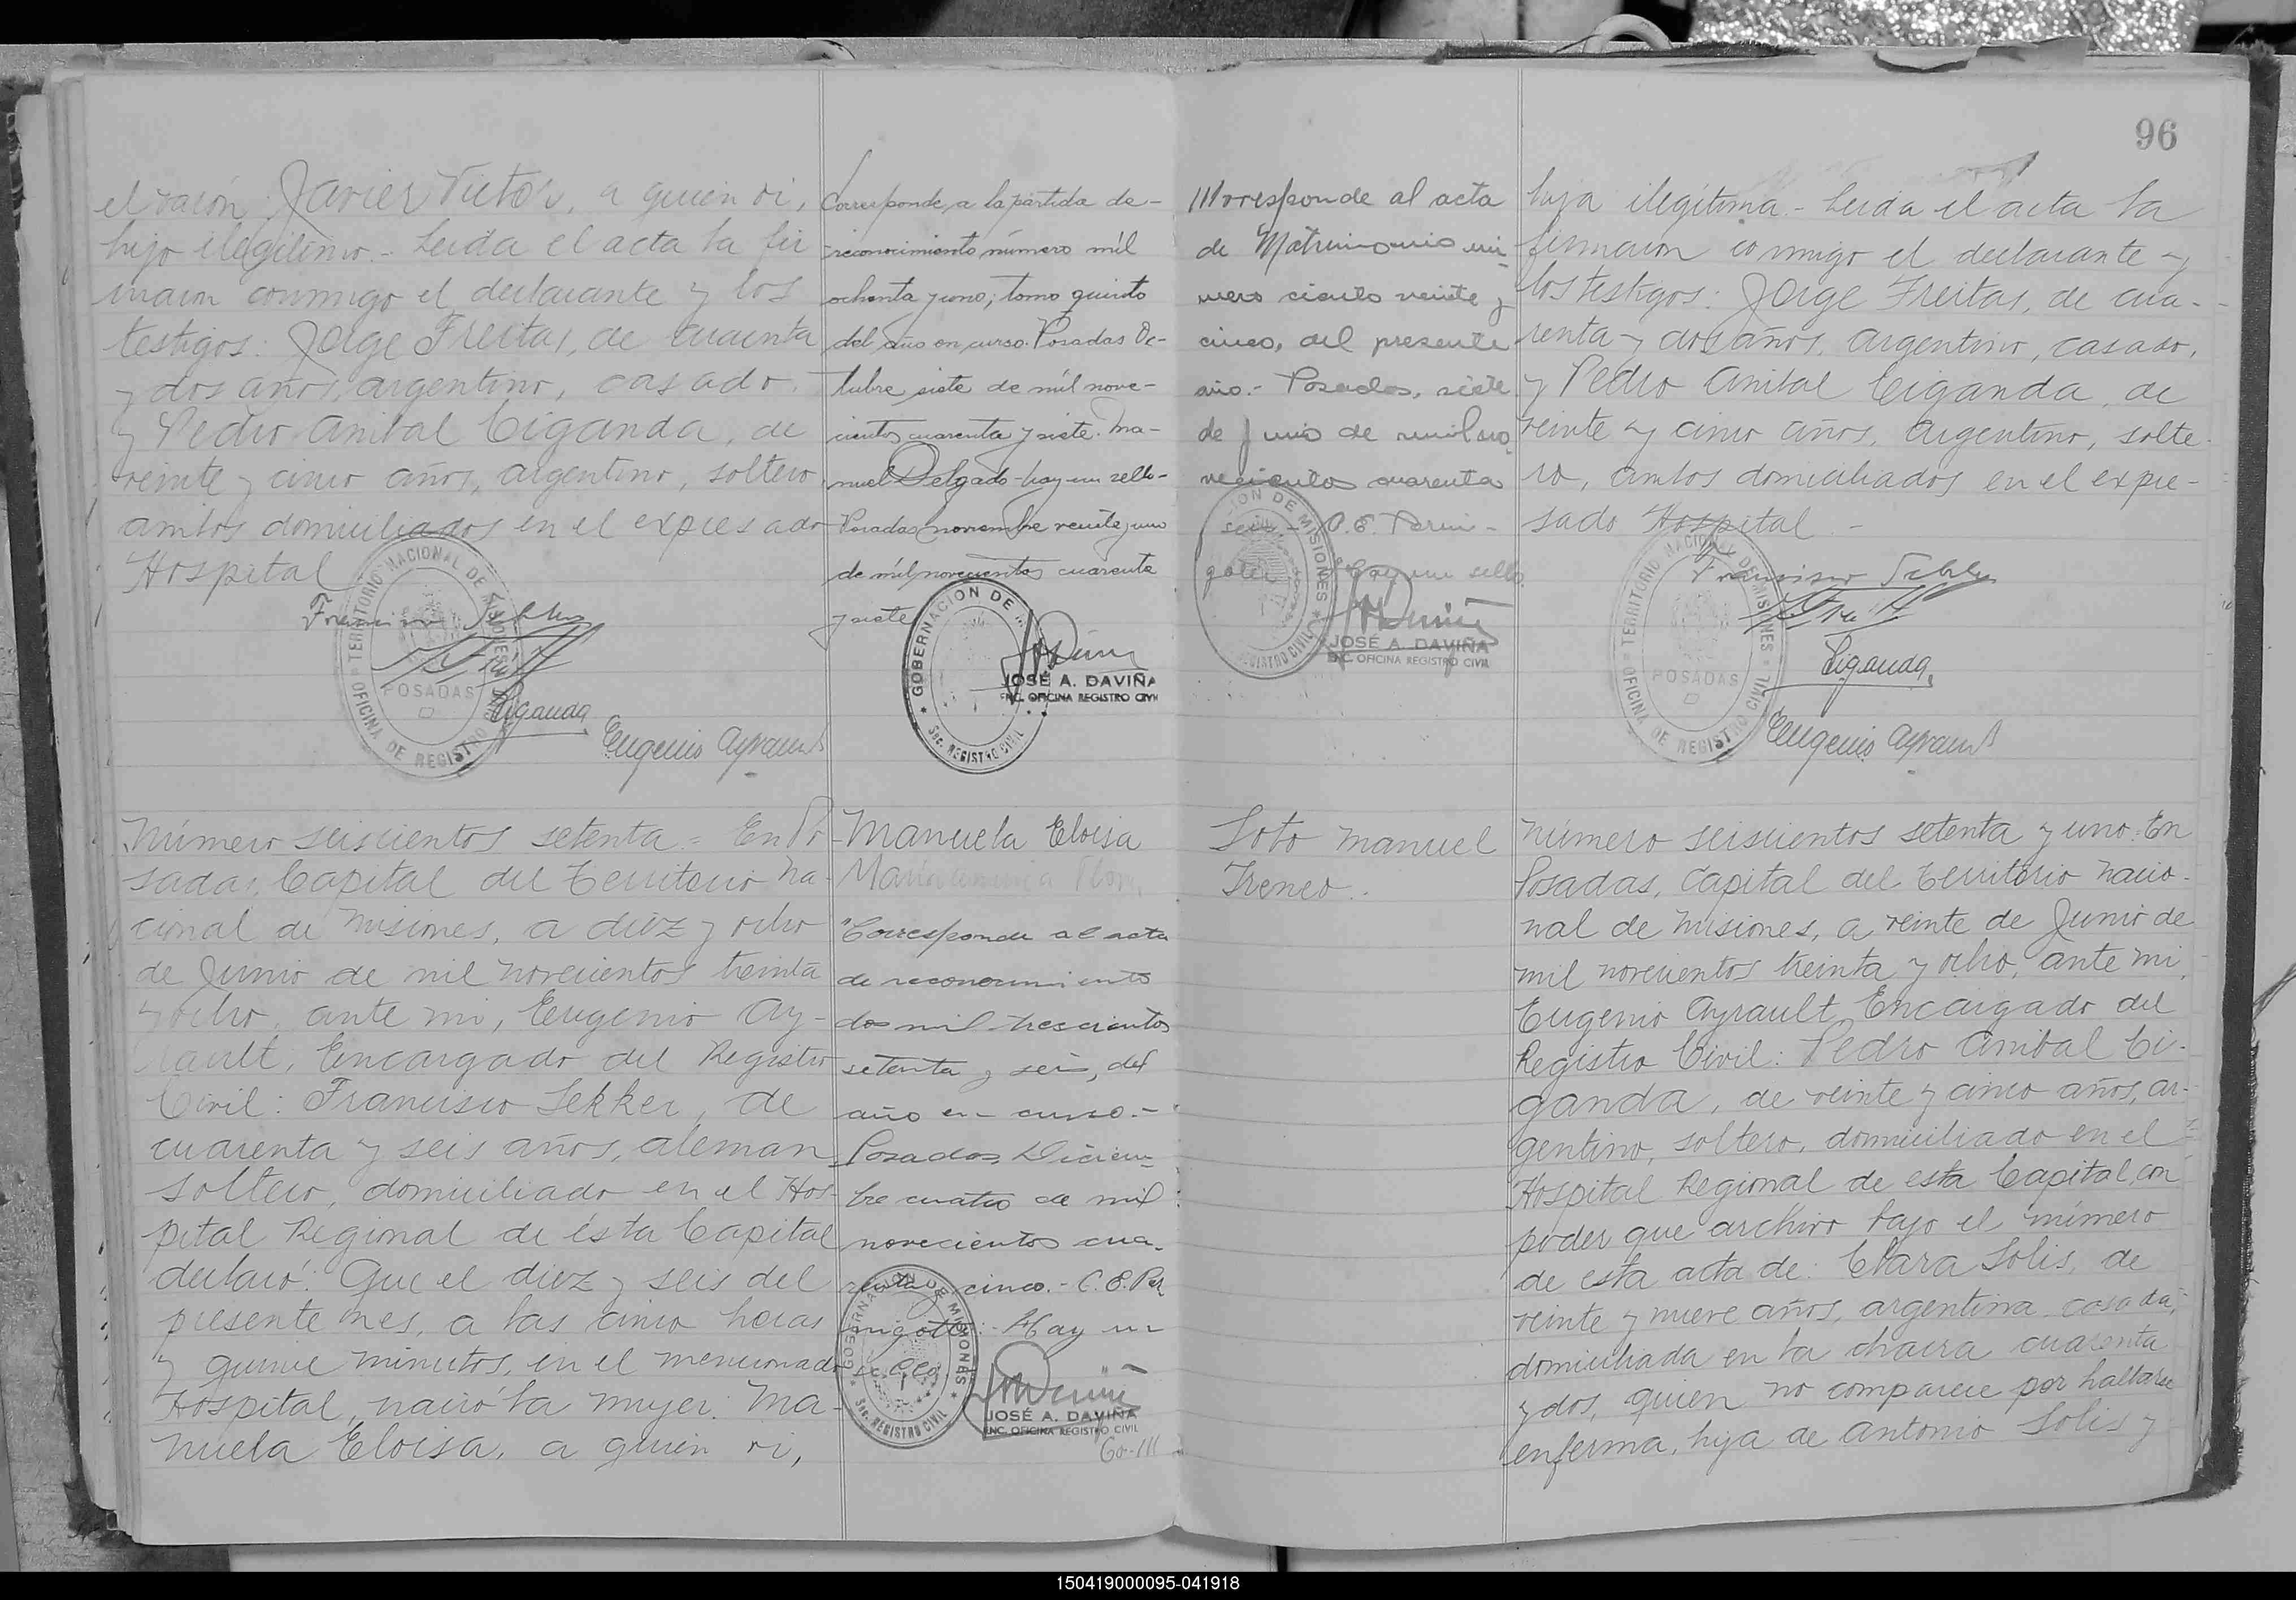 el varón: Javier Victor, a quien vi,
hijo ilegítimo.- Leida el acta la fir
maron conmigo el declarante y los
testigos: Jorge Freitas, de cuarenta
y dos años, argentino, casado,
y Pedro Anibal Ciganda, de
veinte y cinco años, argentino, soltero,
ambos domiciliados en el expresado
Hospital
TERRITORIO NACIONAL DE MISIONES
OFICINA DE REGISTRO CIVIL
POSADAS
Ciganda
Eugenio Ayrault
Corresponde a la partida de-
reconocimiento número mil
ochenta y uno; tomo quinto
del año en curso. Posadas Oc-
tubre siete de mil nove-
cientos cuarenta y siete. Ma-
nuel Delgado - hay un sello-
Posadas noviembre veinte y uno
de mil novecientos cuarenta
y siete
GOBERNACION DE
Sec. REGISTRO CIVIL
JOSÉ A. DAVIÑA
ENC. OFICINA REGISTRO CIVIL
Número seiscientos setenta = En Po
sadas, Capital del Territorio Na-
cional de Misiones, a diez y ocho
de Junio de mil novecientos treinta
y ocho, ante mi, Eugenio Ay-
rault, Encargado del Registro
Civil: Francisco Sekker, de
cuarenta y seis años, aleman,
soltero, domiciliado en el Hos-
pital Regional de ésta Capital
declaró: Que el diez y seis del
presente mes, a las cinco horas
y quince minutos, en el mencionado
Hospital, nació la mujer: Ma-
nuela Eloisa, a quien vi,
Manuela Eloisa
"Corresponde al acta
de reconocimiento
dos mil trescientos
setenta y seis, del
año en curso.-
Posadas, Diciem-
bre cuatro de mil
novecientos cua-
renta y cinco.- C. E. Per
migotti - Hay un
sello
GOBERNACION DE MISIONES
Sec. REGISTRO CIVIL
JOSÉ A. DAVIÑA
ENC. OFICINA REGISTRO CIVIL
Co-III
96
///orresponde al acta
de Matrimonio nú-
mero ciento veinte y
cinco, del presente
año.- Posadas, siete
de Junio de mil no
vecientos cuarenta
seis - C. E. Permi-
gotti Hay un sello
CION DE MISIONES
REGISTRO CIVIL
JOSÉ A. DAVIÑA
ENC. OFICINA REGISTRO CIVIL
hija ilegítima.- Leida el acta la
firmaron conmigo el declarante y
los testigos: Jorge Freitas, de cua-
renta y dos años, argentino, casado,
y Pedro Anibal Ciganda, de
veinte y cinco años, argentino, solte-
ro, ambos domiciliados en el expre-
sado Hospital -
TERRITORIO NACIONAL DE MISIONES
OFICINA DE REGISTRO CIVIL
POSADAS
Ciganda
Eugenio Ayrault
Soto Manuel
Ireneo.
Número seiscientos setenta y uno: En
Posadas, Capital del Territorio Nacio-
nal de Misiones, a veinte de Junio de
mil novecientos treinta y ocho, ante mi,
Eugenio Ayrault, Encargado del
Registro Civil: Pedro Anibal Ci-
ganda, de veinte y cinco años, ar-
gentino, soltero, domiciliado en el
Hospital Regional de esta Capital, con
poder que archivo bajo el número
de esta acta de: Clara Solis, de
veinte y nueve años, argentina, casada,
domiciliada en la chacra cuarenta
y dos, quien no comparece por hallarse
enferma, hija de Antonio Solis y
150419000095-041918